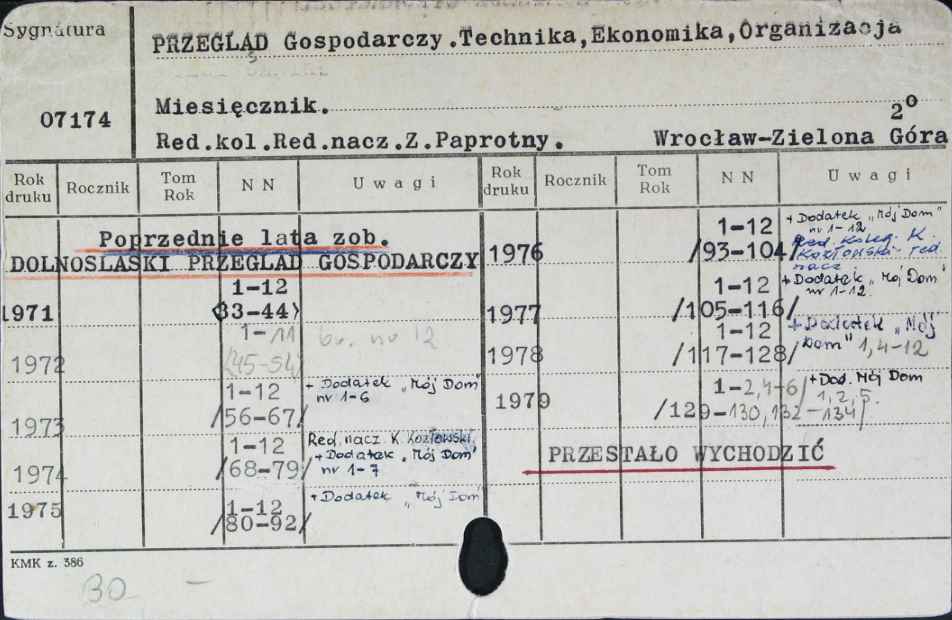 Sygnatura
PRZEGLĄD Gospodarczy.Technika,Ekonomika,Organizacja
07174
Miesięcznik.
2°
Red.kol.Red.nacz.Z.Paprotny. Wrocław-Zielona Góra
Rok druku Rocznik Tom Rok N N Uwagi Rok druku Rocznik Tom Rok N N Uwagi
Poprzednie lata zob.
DOLNOSLASKI PRZEGLĄD GOSPODARCZY
1971 1-12
(33-44)
1972 1-11 br. nr 12
(45-54)
1973 1-12 + Dodatek „Mój Dom"
/56-67/ nr 1-6
1974 1-12 Red. nacz. K. Kozłowski,
/68-79/ + Dodatek „Mój Dom"
nr 1-7
1975 1-12 + Dodatek „Mój Dom"
/80-92/
1976 1-12 + Dodatek „Mój Dom"
nr 1-12
/93-104/ Red. Koleg. K.
Kozłowski red.
nacz.
1977 1-12 + Dodatek „Mój Dom"
/105-116/ nr 1-12.
1978 1-12 + Dodatek „Mój
/117-128/ Dom" 1,4-12
1979 1-2,4-6/ + Dod. Mój Dom
/129-130,132-134/ 1,2,5.
PRZESTAŁO WYCHODZIĆ
KMK z. 386
30 –